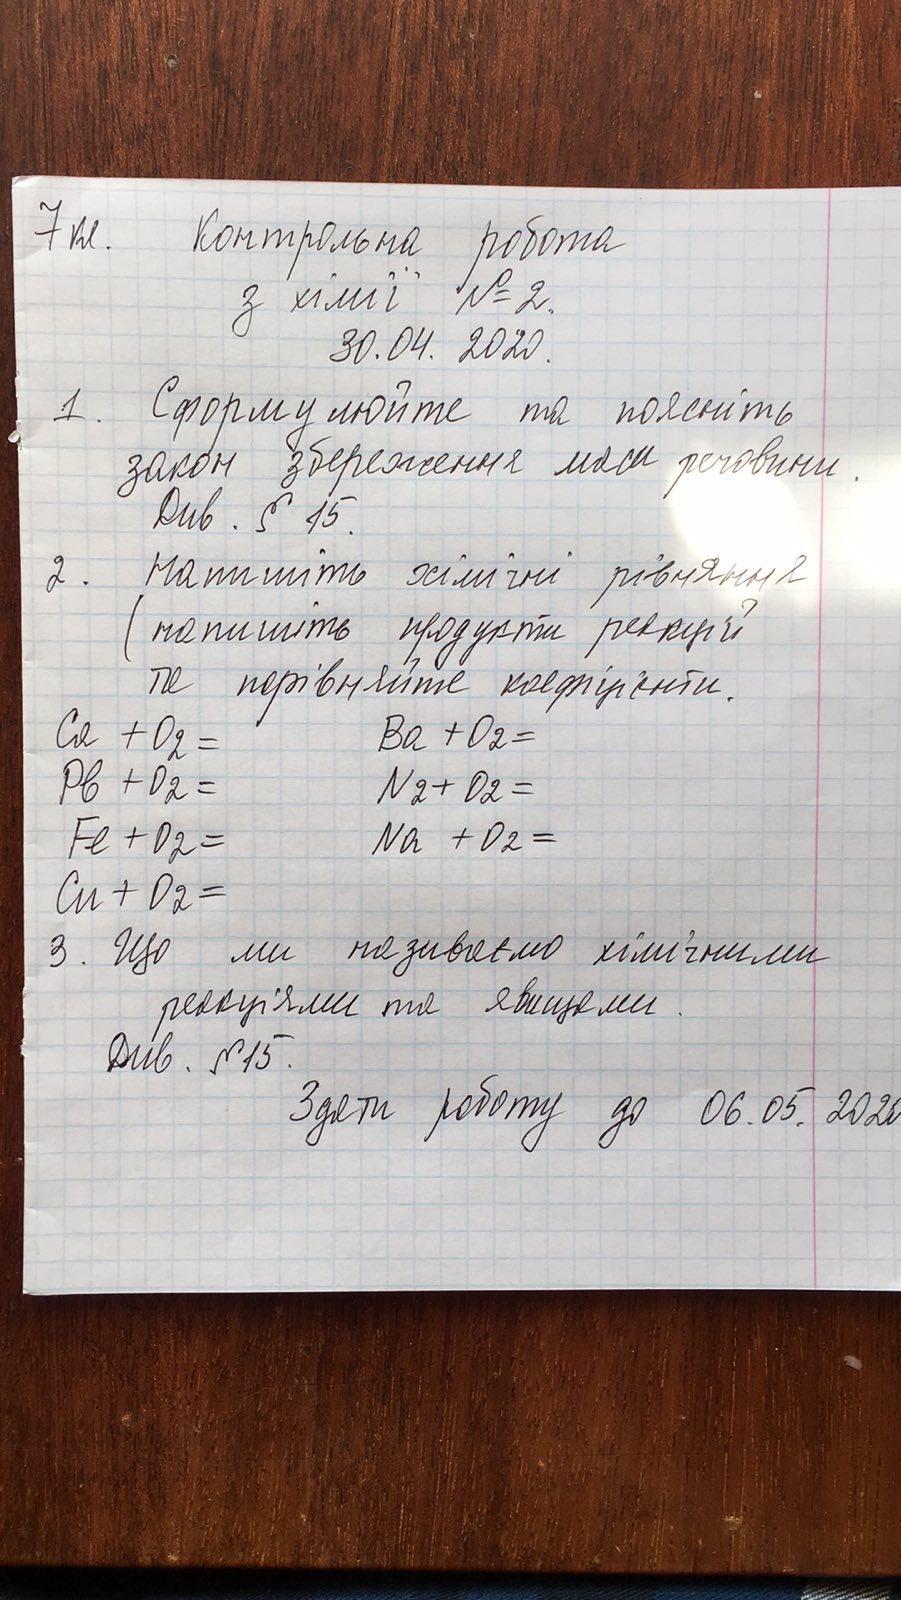 7 кл. Контрольна робота
з хімії № 2.
30.04. 2020.
1. Сформулюйте та поясніть
закон збереження маси речовини.
Див. § 15.
2. Напишіть хімічні рівняння
(напишіть продукти реакцій
та порівняйте коефіцієнти.
Ca + O2 = Ba + O2 =
Pb + O2 = N2 + O2 =
Fe + O2 = Na + O2 =
Cu + O2 =
3. Що ми називаємо хімічними
реакціями та явищами.
Див. §15.
Здати роботу до 06.05. 2020